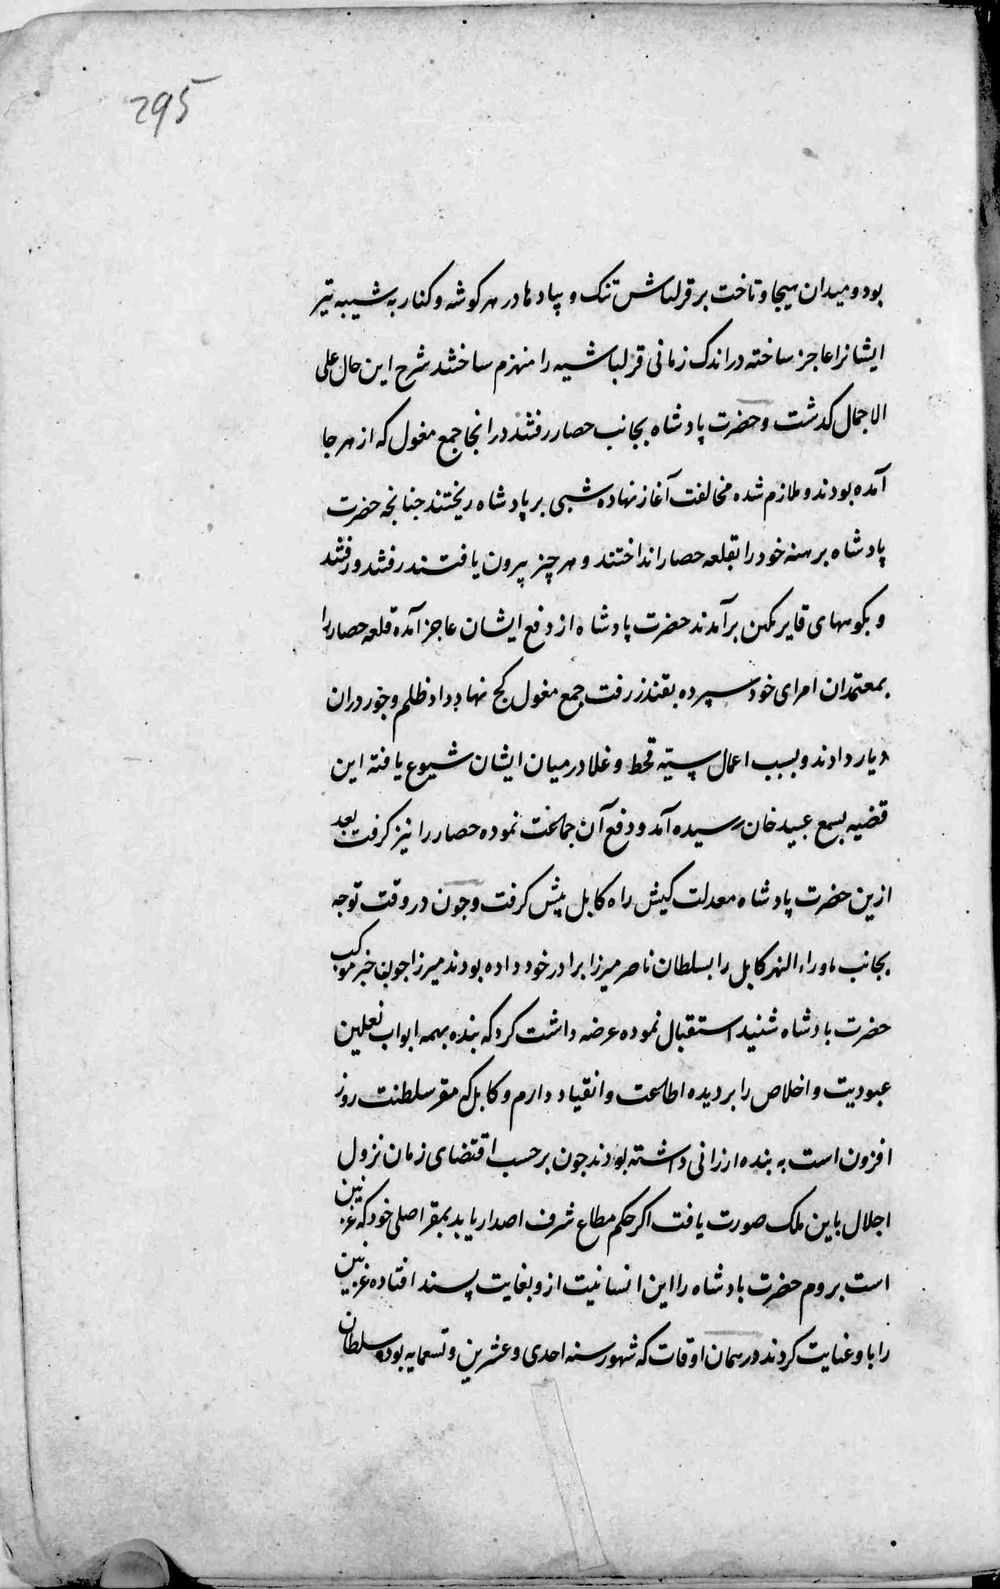 295
بود و میدان هیجا و تاخت بر قزلباش تنک و پیادها در هر کوشه و کنار به شیبه تیر
ایشانرا عاجز ساخته در اندک زمانی قزلباشیه را منهزم ساختند شرح این حال علی
الاجمال کدشت و حضرت پادشاه بجانب حصار رفتند در انجا جمع مغول که از هر جا
آمده بودند و ملازم شده مخالفت آغاز نهاده شبی بر پادشاه ریختند جنانجه حضرت
پادشاه برهنه خود را بقلعه حصار انداختند و هر چیز بیرون یافتند رفتند و رفتند
و بکوههای برآمدند حضرت پادشاه از دفع ایشان عاجز آمده قلعه حصار را
بمعتمدان امرای خود سپرده بقندز رفت جمع مغول کج نهاد داد ظلم و جور دران
دیار دادند و بسبب اعمال سیئه قحط و غلا در میان ایشان شیوع یافته این
قضیه بسمع عبید خان رسیده آمد و دفع آن جماعت نموده حصار را نیز کرفت بعد
ازین حضرت پادشاه معدلت کیش راه کابل پیش کرفت و جون در وقت توجه
بجانب ماوراء النهر کابل را بسلطان ناصر میرزا برادر خود داده بودند میرزا جون خبر موکب
حضرت بادشاه شنید استقبال نموده عرضه داشت کرد که بنده بهمه ابواب نعلین
عبودیت و اخلاص را بر دیده اطاعت و انقیاد دارم و کابل که مقر سلطنت روز
افزون است به بنده ارزانی داشته بودند جون برحسب اقتضای زمان نزول
اجلال باین ملک صورت یافت اکر حکم مطاع شرف اصدار یابد بمقر اصلی خود که غزنین
است بروم حضرت بادشاه را این انسانیت ازو بغایت پسند افتاده غزنین
را باو عنایت کردند در همان اوقات که شهور سنه احدی و عشرین و تسعمایه بوده سلطان